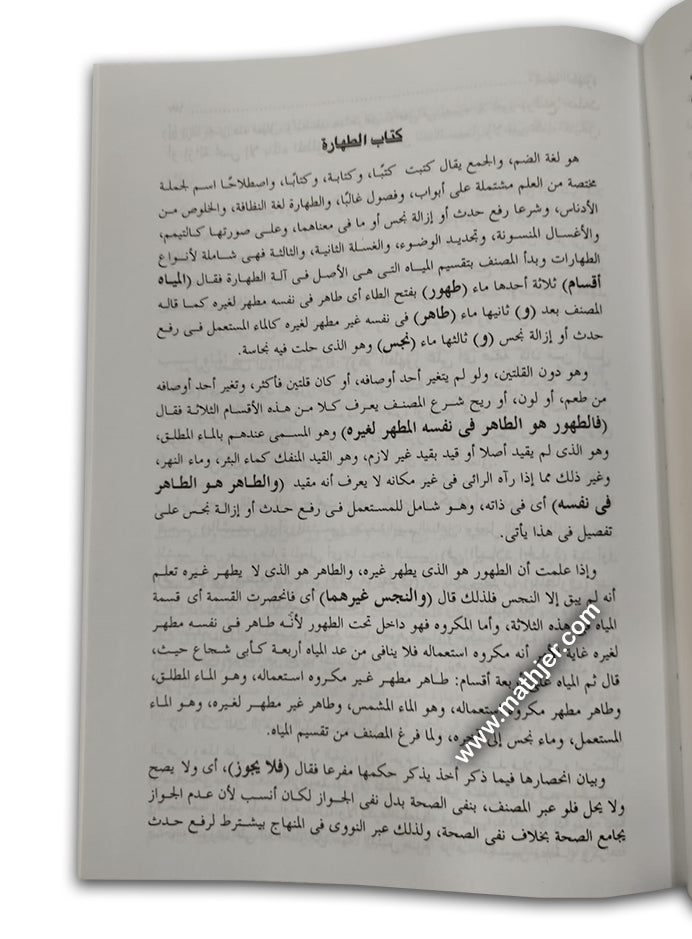 كتاب الطهارة
هو لغة الضم، والجمع يقال كتبت كتبًا، وكتابة، وكتابًا، واصطلاحًا اسم لجملة
مختصة من العلم مشتملة على أبواب، وفصول غالبًا، والطهارة لغة النظافة، والخلوص من
الأدناس، وشرعا رفع حدث أو إزالة نجس أو ما فى معناهما، وعلى صورتها كالتيمم،
والأغسال المنسونة، وتجديد الوضوء، والغسلة الثانية، والثالثة فهى شاملة لأنواع
الطهارات وبدأ المصنف بتقسيم المياه التى هى الأصل فى آلة الطهارة فقال (المياه
أقسام) ثلاثة أحدها ماء (طهور) بفتح الطاء أى طاهر فى نفسه مطهر لغيره كما قاله
المصنف بعد (و) ثانيها ماء (طاهر) فى نفسه غير مطهر لغيره كالماء المستعمل فى رفع
حدث أو إزالة نجس (و) ثالثها ماء (نجس) وهو الذى حلت فيه نجاسة.
وهو دون القلتين، ولو لم يتغير أحد أوصافه، أو كان قلتين فأكثر، وتغير أحد أوصافه
من طعم، أو لون، أو ريح شرع المصنف يعرف كلا من هذه الأقسام الثلاثة فقال
(فالطهور هو الطاهر فى نفسه المطهر لغيره) وهو المسمى عندهم بالماء المطلق،
وهو الذى لم يقيد أصلا أو قيد بقيد غير لازم، وهو القيد المنفك كماء البئر، وماء النهر،
وغير ذلك مما إذا رآه الرائى فى غير مكانه لا يعرف أنه مقيد (والطاهر هو الطاهر
فى نفسه) أى فى ذاته، وهو شامل للمستعمل فى رفع حدث أو إزالة نجس على
تفصيل فى هذا يأتى.
وإذا علمت أن الطهور هو الذى يطهر غيره، والطاهر هو الذى لا يطهر غيره تعلم
أنه لم يبق إلا النجس فلذلك قال (والنجس غيرهما) أى فانحصرت القسمة أى قسمة
المياه فى هذه الثلاثة، وأما المكروه فهو داخل تحت الطهور لأنه طاهر فى نفسه مطهر
لغيره غاية أنه مكروه استعماله فلا ينافى من عد المياه أربعة كأبى شجاع حيث،
قال ثم المياه على أربعة أقسام: طاهر مطهر غير مكروه استعماله، وهو الماء المطلق،
وطاهر مطهر مكروه استعماله، وهو الماء المشمس، وطاهر غير مطهر لغيره، وهو الماء
المستعمل، وماء نجس إلى آخره، ولما فرغ المصنف من تقسيم المياه.
وبيان انحصارها فيما ذكر أخذ يذكر حكمها مفرعا فقال (فلا يجوز)، أى ولا يصح
ولا يحل فلو عبر المصنف، بنفى الصحة بدل نفى الجواز لكان أنسب لأن عدم الجواز
يجامع الصحة بخلاف نفى الصحة، ولذلك عبر النووى فى المنهاج بيشترط لرفع حدث
www.mathjer.com